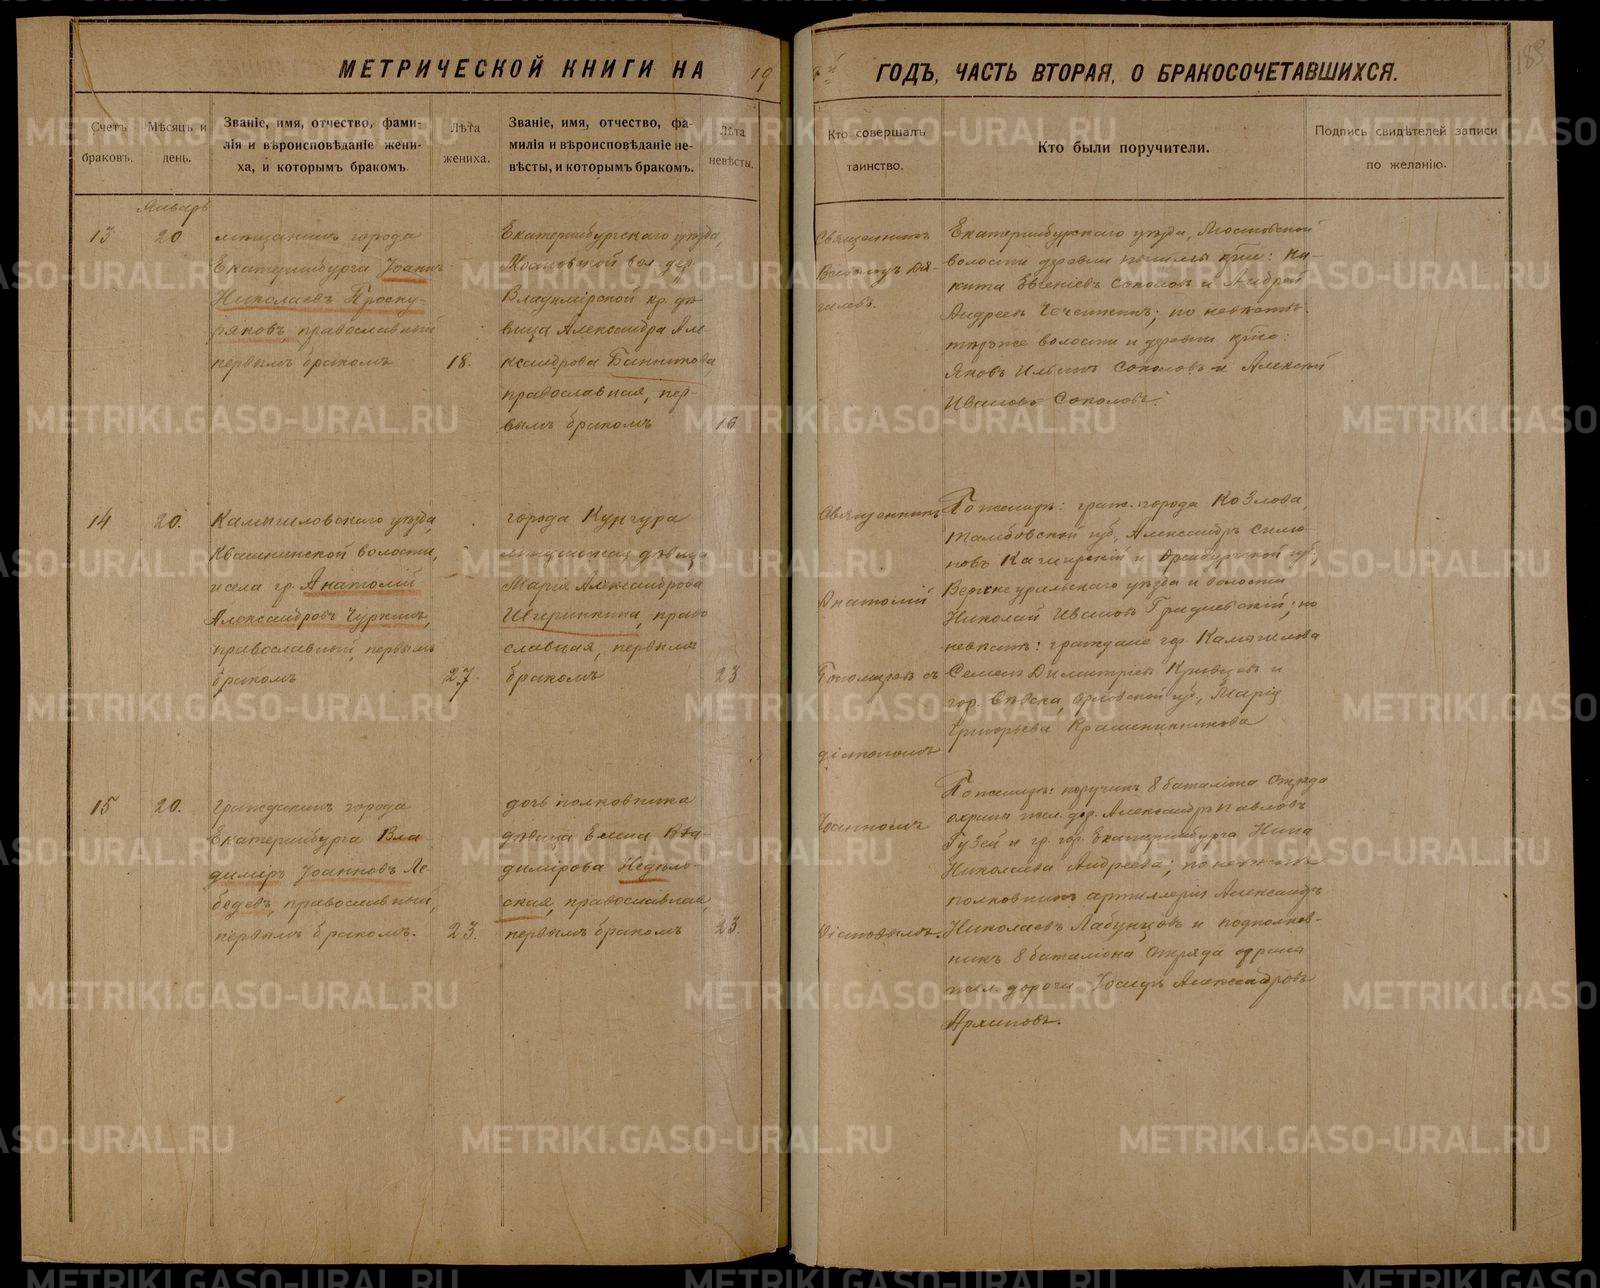 МЕТРИЧЕСКОЙ КНИГИ НА 19
Счетъ браковъ.
Мѣсяцъ и день.
Званіе, имя, отчество, фами-
лія и вѣроисповѣданіе жени-
ха, и которымъ бракомъ.
Лѣта жениха.
Званіе, имя, отчество, фа-
милія и вѣроисповѣданіе не-
вѣсты, и которымъ бракомъ.
Лѣта невѣсты.
Январь
13
20
мѣщанинъ города
Екатеринбурга Іоаннъ
Николаевъ Проску-
ряковъ, православный
первымъ бракомъ
18.
Екатеринбургскаго уѣзда,
Мостовской вол. дер.
Владимірской кр. дѣ-
вица Александра Але
ксандрова Банникова,
православная, пер-
вымъ бракомъ
16
14
20.
Камышловскаго уѣзда,
Квашнинской волости,
и села гр. Анатолій
Александровъ Чуркинъ,
православный, первымъ
бракомъ
27.
города Кунгура
мѣщанская дѣвица
Марія Александрова
православная, первымъ
бракомъ
23
15
20.
гражданинъ города
Екатеринбурга Вла
димиръ Іоанновъ Ле-
бедевъ, православный,
первымъ бракомъ.
23.
дочь полковника
дѣвица Елена Вла-
димірова Недѣль-
ская, православная,
первымъ бракомъ
23.
ГОДЪ, ЧАСТЬ ВТОРАЯ, О БРАКОСОЧЕТАВШИХСЯ.
Кто совершалъ
таинство.
Кто были поручители.
Подпись свидѣтелей записи
по желанію.
Священникъ
Екатеринбурскаго уѣзда, Мостовской
волости деревни
кита Евгеніевъ Соколовъ и Андрей
Андреевъ по невѣстѣ:
волости и деревни
Яковъ Ильинъ Соколовъ и Алексѣй
Ивановъ Соколовъ.
Священникъ
Анатолій
Пономаревъ съ
діакономъ
Іоанномъ
По женихѣ: граж. города Козлова,
Тамбовской губ, Александръ
и Оренбургской губ,
Верхнеуральскаго уѣзда и волости
Николай Ивановъ по
невѣстѣ: граждане гор. Камышлова
Семенъ Димитріевъ Кривцевъ и
гор. Сѣвска, Орловской губ, Марія
Григорьева Крашенинникова
По женихѣ: поручикъ 8 баталіона Отряда
охраны жел. дор. Александръ Павловъ
Гузей и гр. гор. Екатеринбурга Нина
Николаева Андреева; по невѣстѣ
полковникъ артиллеріи Александръ
Николаевъ Лабунцовъ и подполков-
никъ 8 баталіона Отряда охраны
жел. дороги Іосифъ Александровъ
Архиповъ.
METRIKI.GASO-URAL.RU